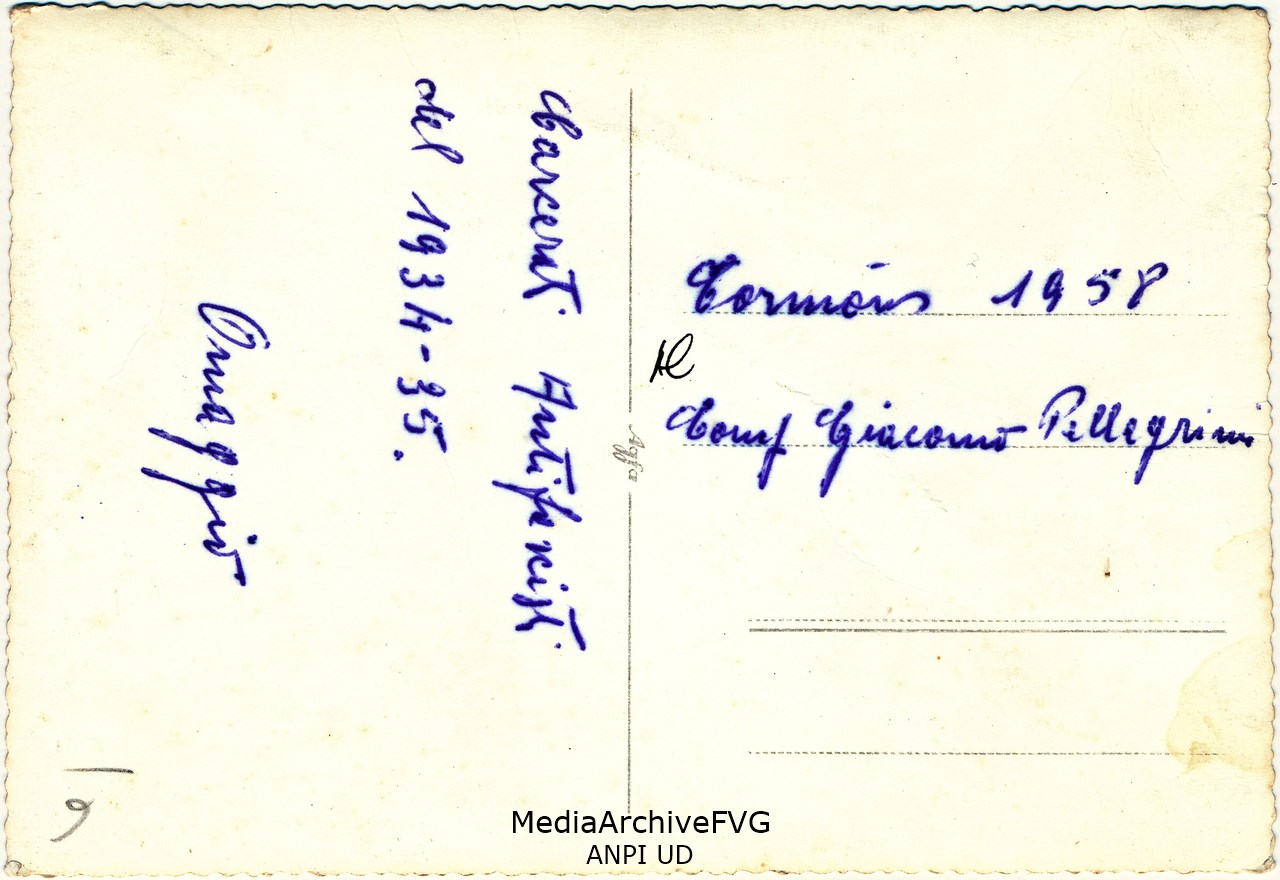 Carcerati Antifascisti
del 1934-35.
Omaggio
Cormòns 1958
Al
Comp Giacomo Pellegrini
Agfa
9
MediaArchiveFVG
ANPI UD